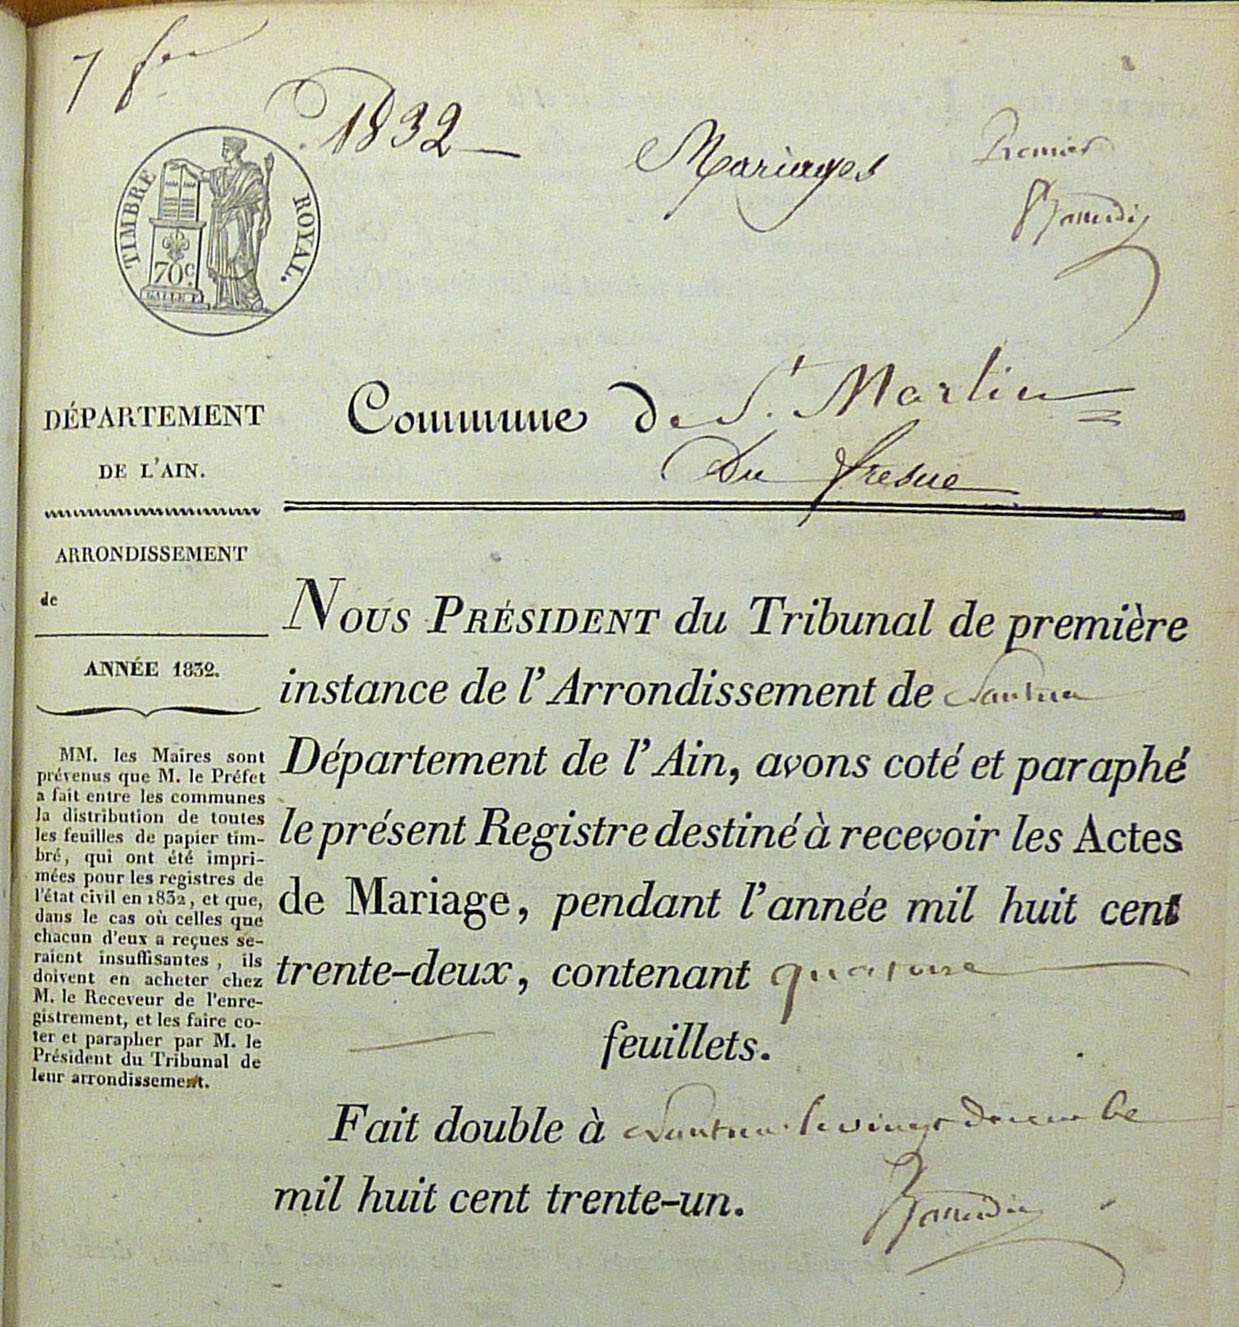 1832
Mariages
Premier
TIMBRE ROYAL.
70 C.
Commune de St. Martin
Du fresne
DÉPARTEMENT
DE L'AIN.
ARRONDISSEMENT
de
ANNÉE 1832.
MM. les Maires sont
prévenus que M. le Préfet
a fait entre les communes
la distribution de toutes
les feuilles de papier tim-
bré, qui ont été impri-
mées pour les registres de
l'état civil en 1832, et que,
dans le cas où celles que
chacun d'eux a reçues se-
raient insuffisantes, ils
doivent en acheter chez
M. le Receveur de l'enre-
gistrement, et les faire co-
ter et parapher par M. le
Président du Tribunal de
leur arrondissement.
NOUS PRÉSIDENT du Tribunal de première
instance de l'Arrondissement de Nantua
Département de l'Ain, avons coté et paraphé
le présent Registre destiné à recevoir les Actes
de Mariage, pendant l'année mil huit cent
trente-deux, contenant quatorze
feuillets.
Fait double à Nantua le vingt Decembe
mil huit cent trente-un.